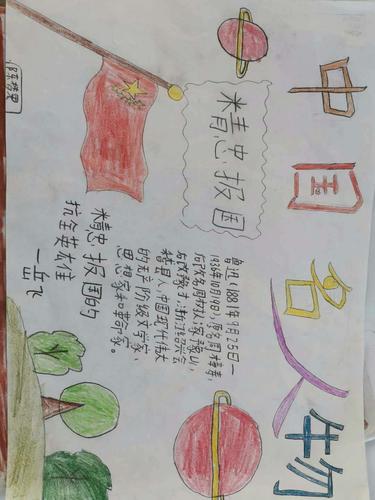 中国名人物
精忠报国
鲁迅(1881年9月25日一
1936年10月19日),原名周樟寿,
后改名周树人,字豫山,
后改豫才,浙江绍兴会
稽县人,中国现代伟大
的无产阶级文学家,
思想家和革命家。
精忠报国的
抗金英雄
一岳飞